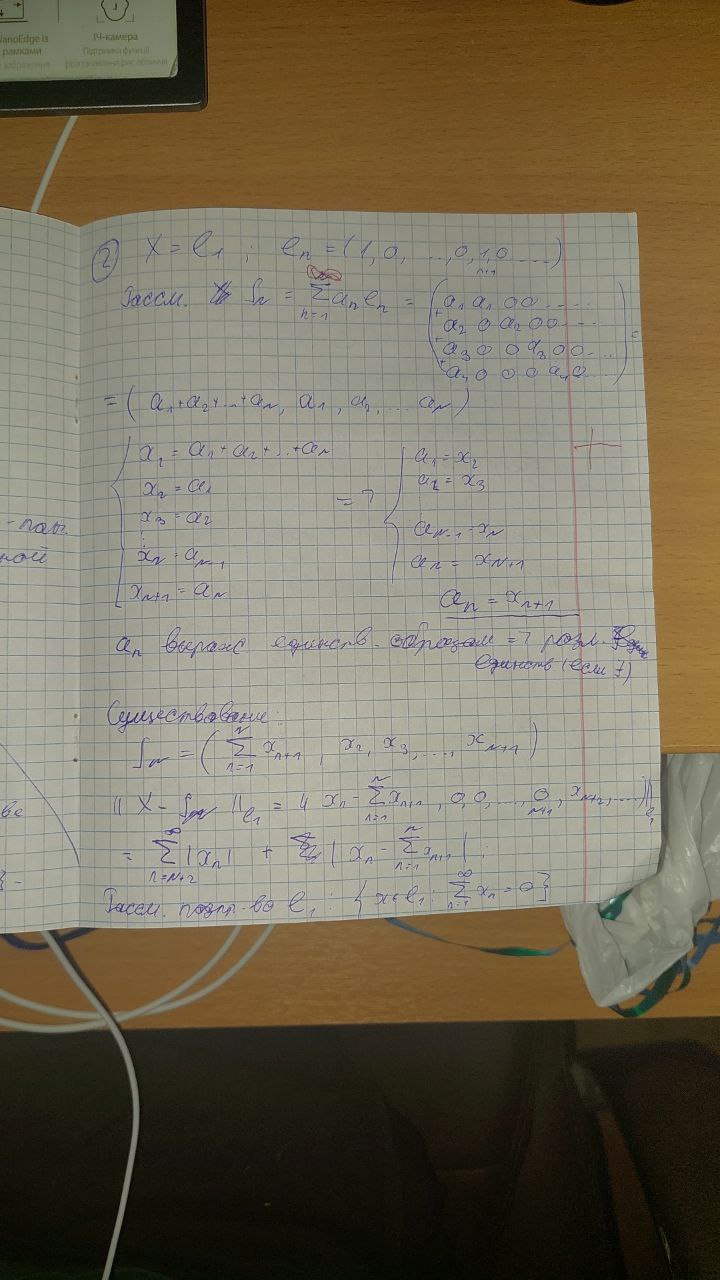 NanoEdge is
рамками
ІЧ-камера
Підтримка функції
розпізнавання рис обличчя
② X = l₁ ; eₙ = (1, 0, ..., 0, 1, 0 ....)
n+1
Рассм. S_N = Σ aₙ eₙ = ( a₁ a₁ 0 0 .....
n=1
+ a₂ 0 a₂ 0 0 ....
+ a₃ 0 0 a₃ 0 0 ...
+ a₄ 0 0 0 a₄ 0 .... ) =
= ( a₁ + a₂ + ... + a_N, a₁, a₂, ... a_N )
{ x₁ = a₁ + a₂ + ... + a_N
x₂ = a₁
x₃ = a₂
⋮
x_N = a_{N-1}
x_{N+1} = a_N
=> { a₁ = x₂
a₂ = x₃
⋮
a_{N-1} = x_N
a_N = x_{N+1}
aₙ = xₙ₊₁
aₙ выраж единств. образом => разл.
единств (если ∃)
Существование:
S_N = ( Σ_{n=1}^{N} xₙ₊₁, x₂, x₃, ..., x_{N+1} )
|| X - S_N ||_{l₁} = || x₁ - Σ_{n=1}^{N} xₙ₊₁, 0, 0, ..., 0, x_{N+2}, ... ||_{l₁}
N+1
= Σ_{n=N+2}^{∞} |xₙ| + | x₁ - Σ_{n=1}^{N} xₙ₊₁ | ;
Рассм. подпр-во l₁ : { x ∈ l₁ : Σ_{n=1}^{∞} xₙ = 0 }